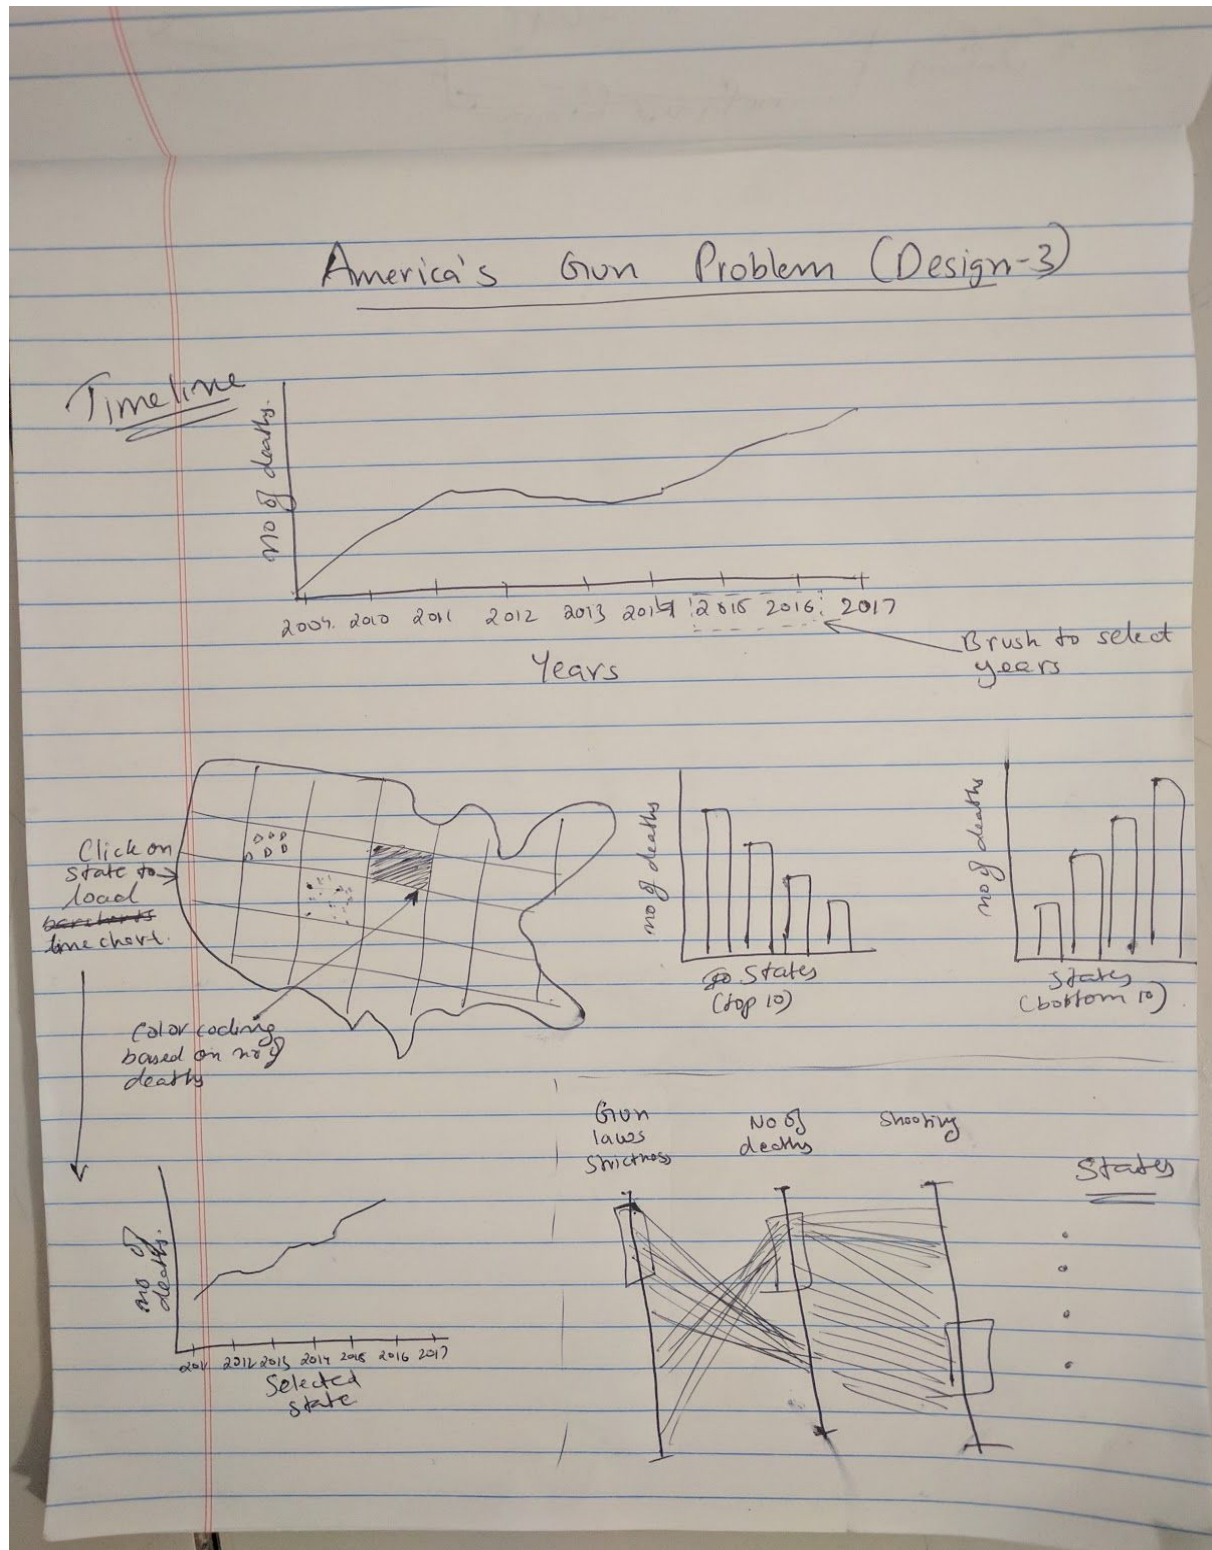 America's Gun Problem (Design-3)
Timeline
no of deaths.
2009. 2010 2011 2012 2013 2014 2015 2016 2017
Years
Brush to select
years
Click on
state to
load
barcharts
line chart.
Color coding
based on no of
deaths
no of deaths
States
(top 10)
no of deaths
States
(bottom 10)
no of
deaths.
2011 2012 2013 2014 2015 2016 2017
Selected
state
Gun
laws
Strictness
No of
deaths
Shooting
States